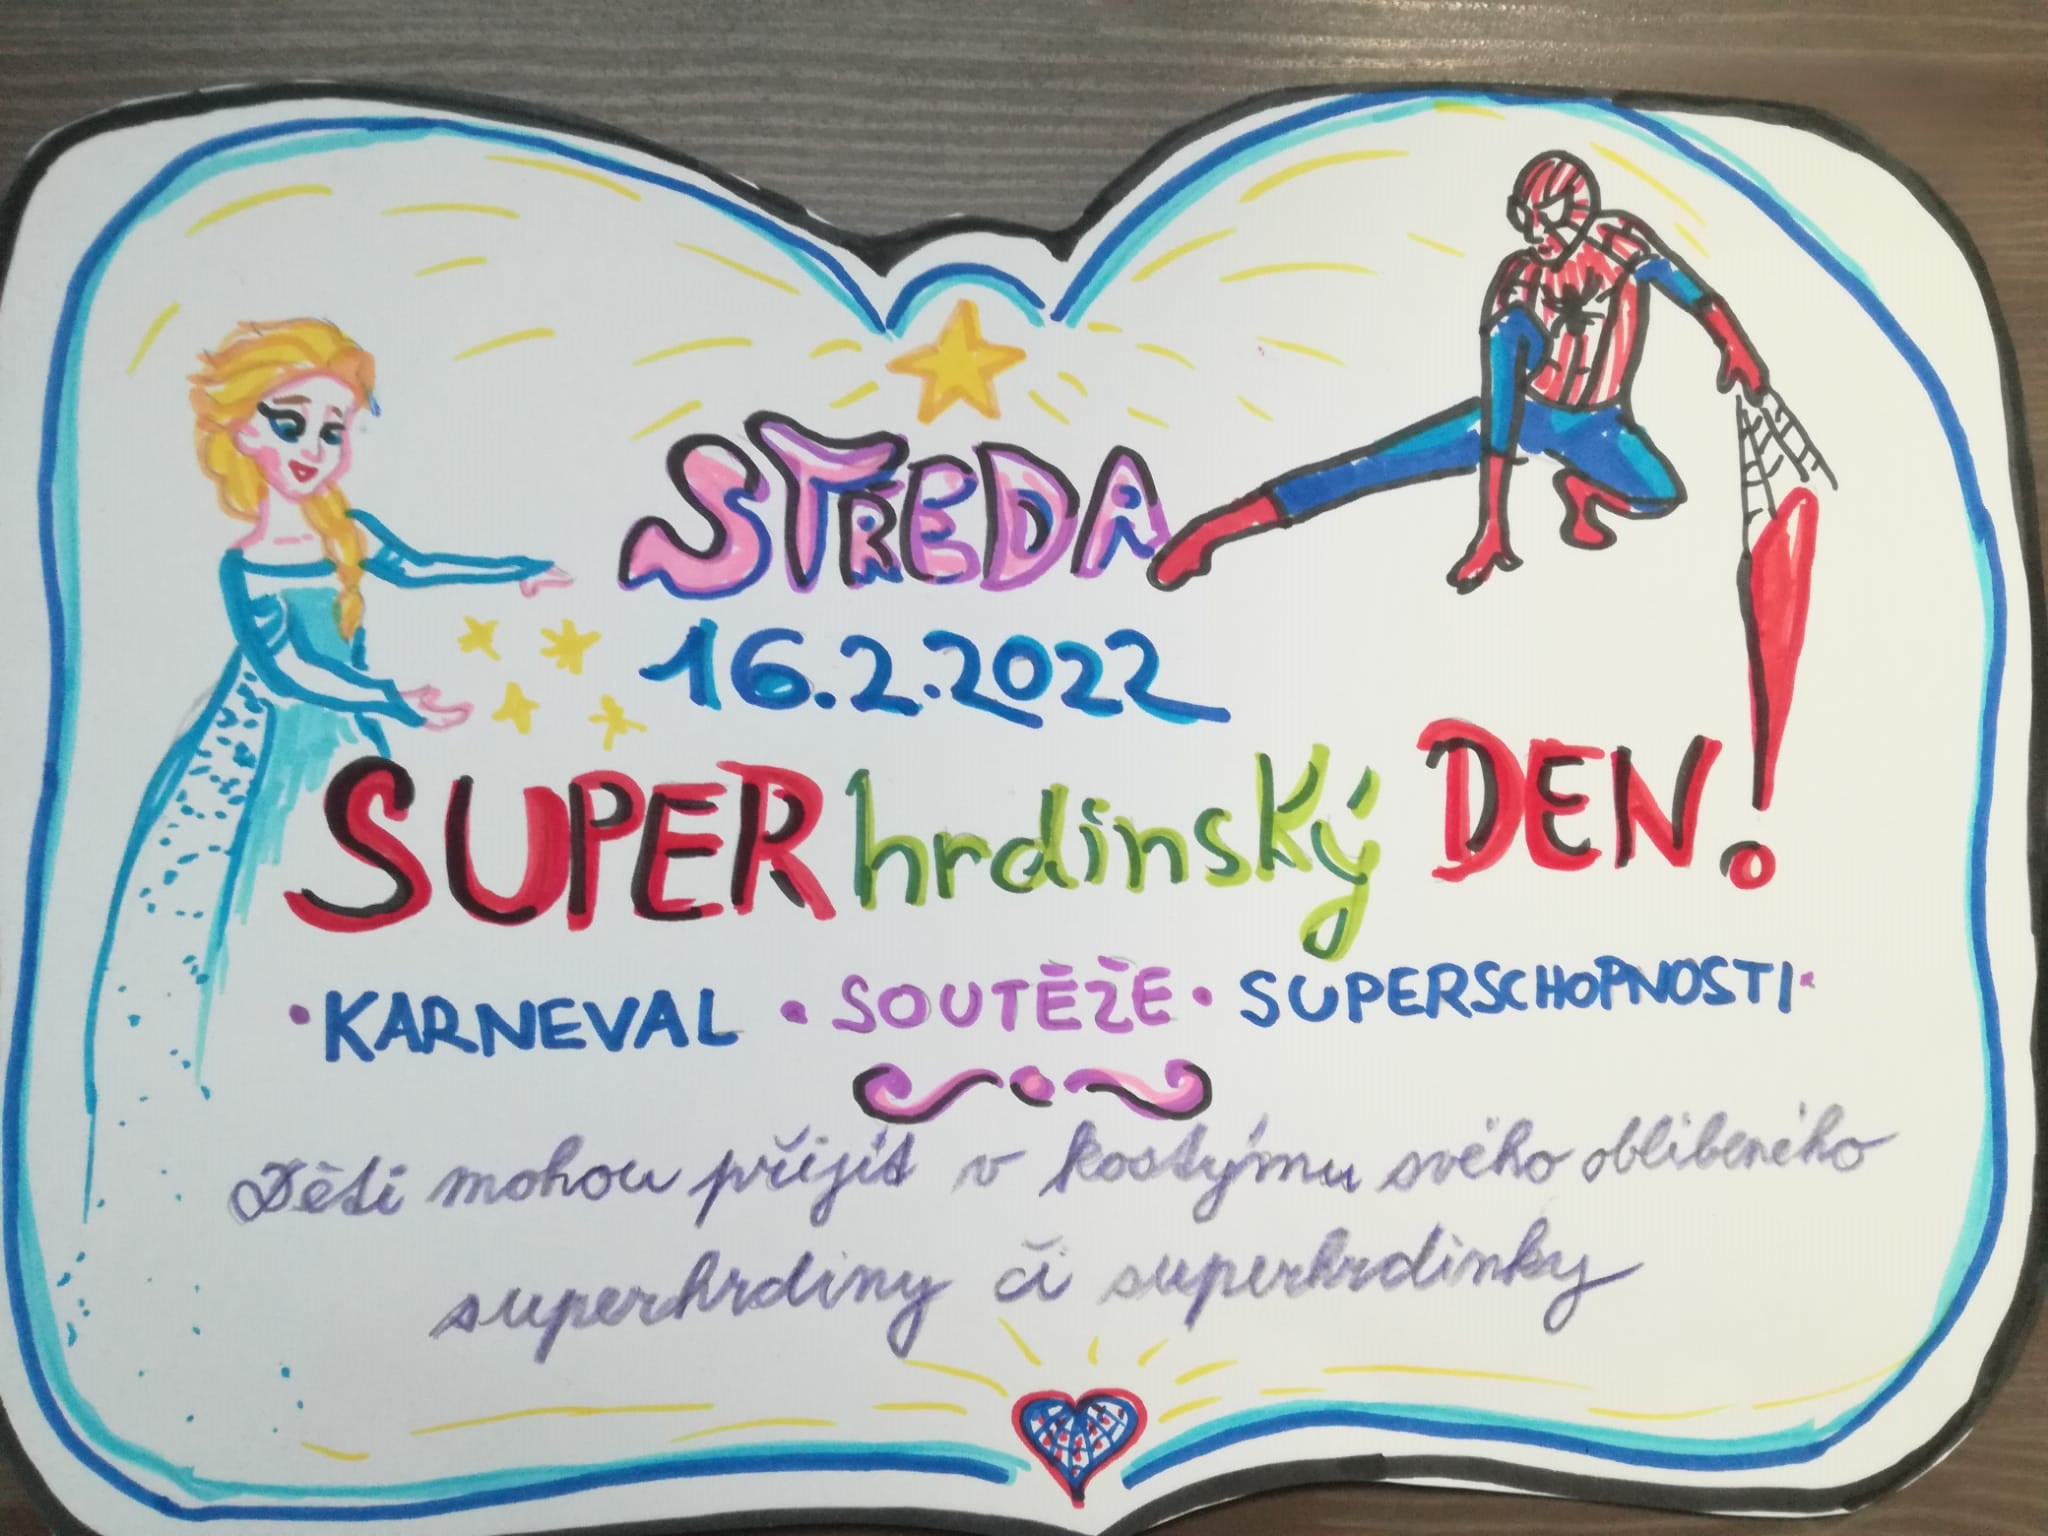 STŘEDA
16.2.2022
SUPERhrdinský DEN!
• KARNEVAL • SOUTĚŽE • SUPERSCHOPNOSTI •
Děti mohou přijít v kostýmu svého oblíbeného
superhrdiny či superhrdinky